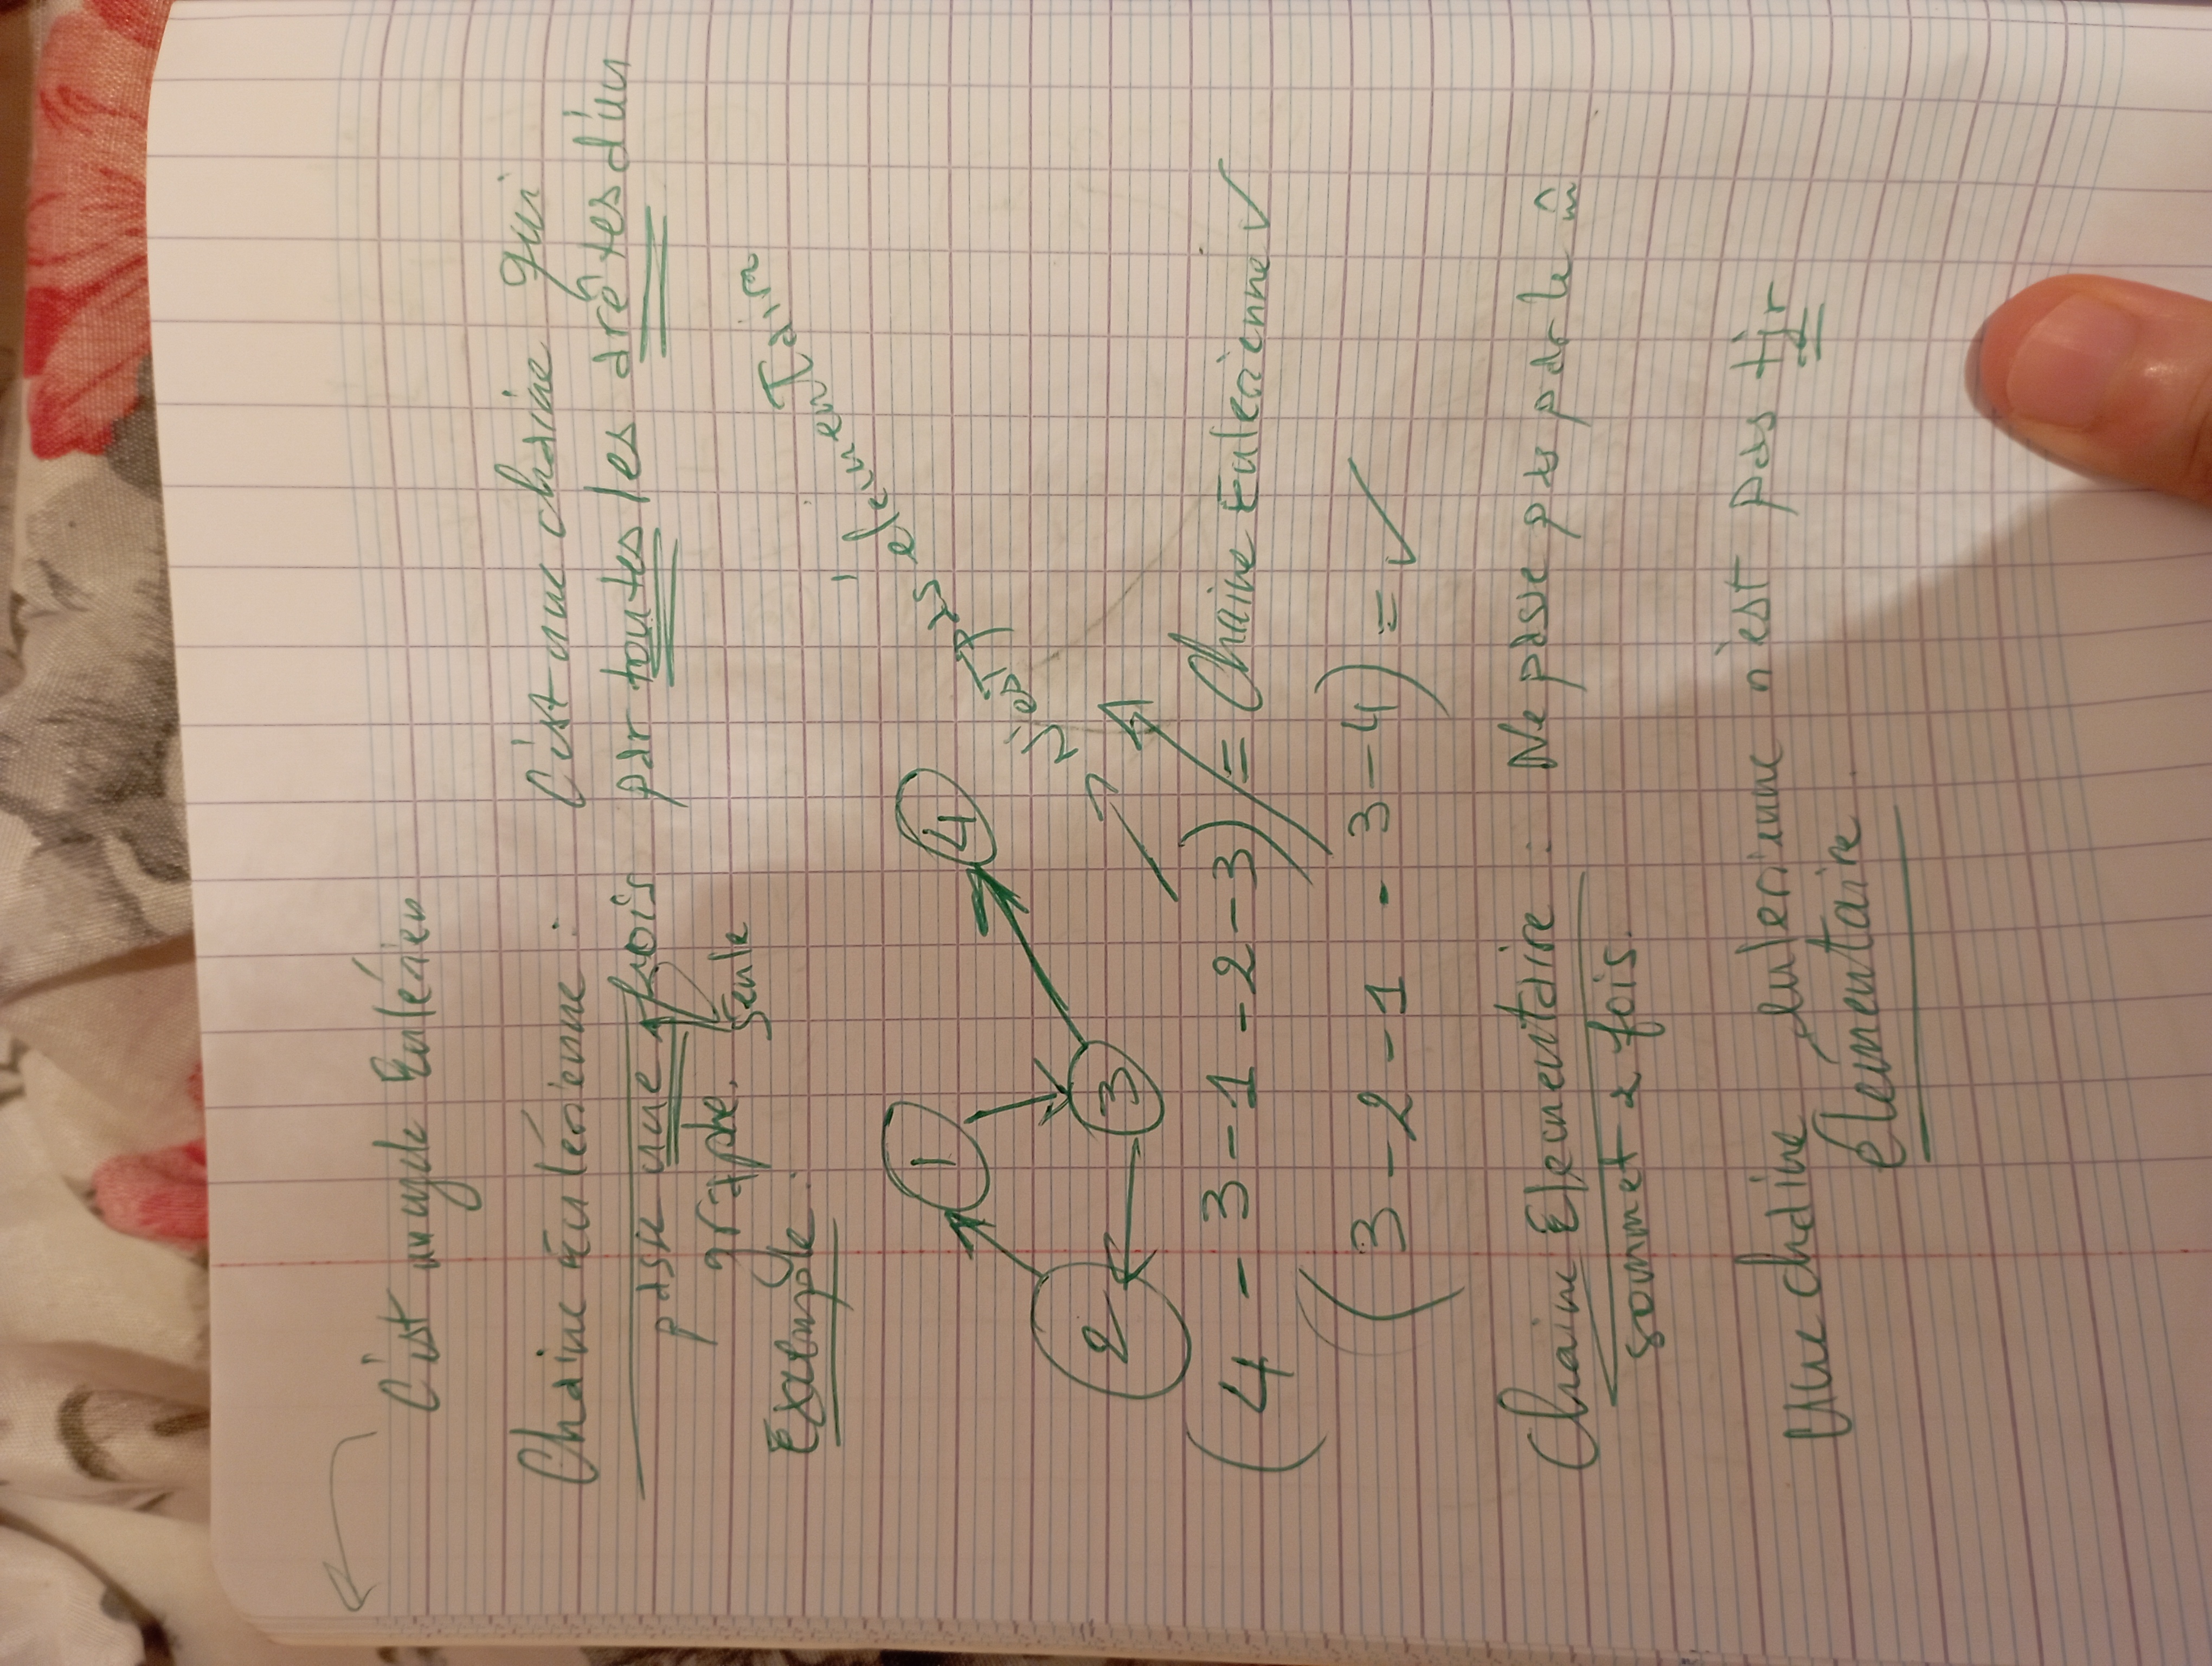 C'est un cycle Eulérien
Chaine eulérienne : C'est une chaine qui
passe une fois par toutes les arêtes d'un
graphe. seule
Exemple :
1
2
3
4
N'est pas élémentaire
(4 - 3 - 1 - 2 - 3) = Chaine Eulerienne ✓
(3 - 2 - 1 - 3 - 4) = ✓
Chaine Elementaire : Ne passe pas par le m̂
sommet 2 fois.
Une chaine eulerienne n'est pas tjr
élémentaire.